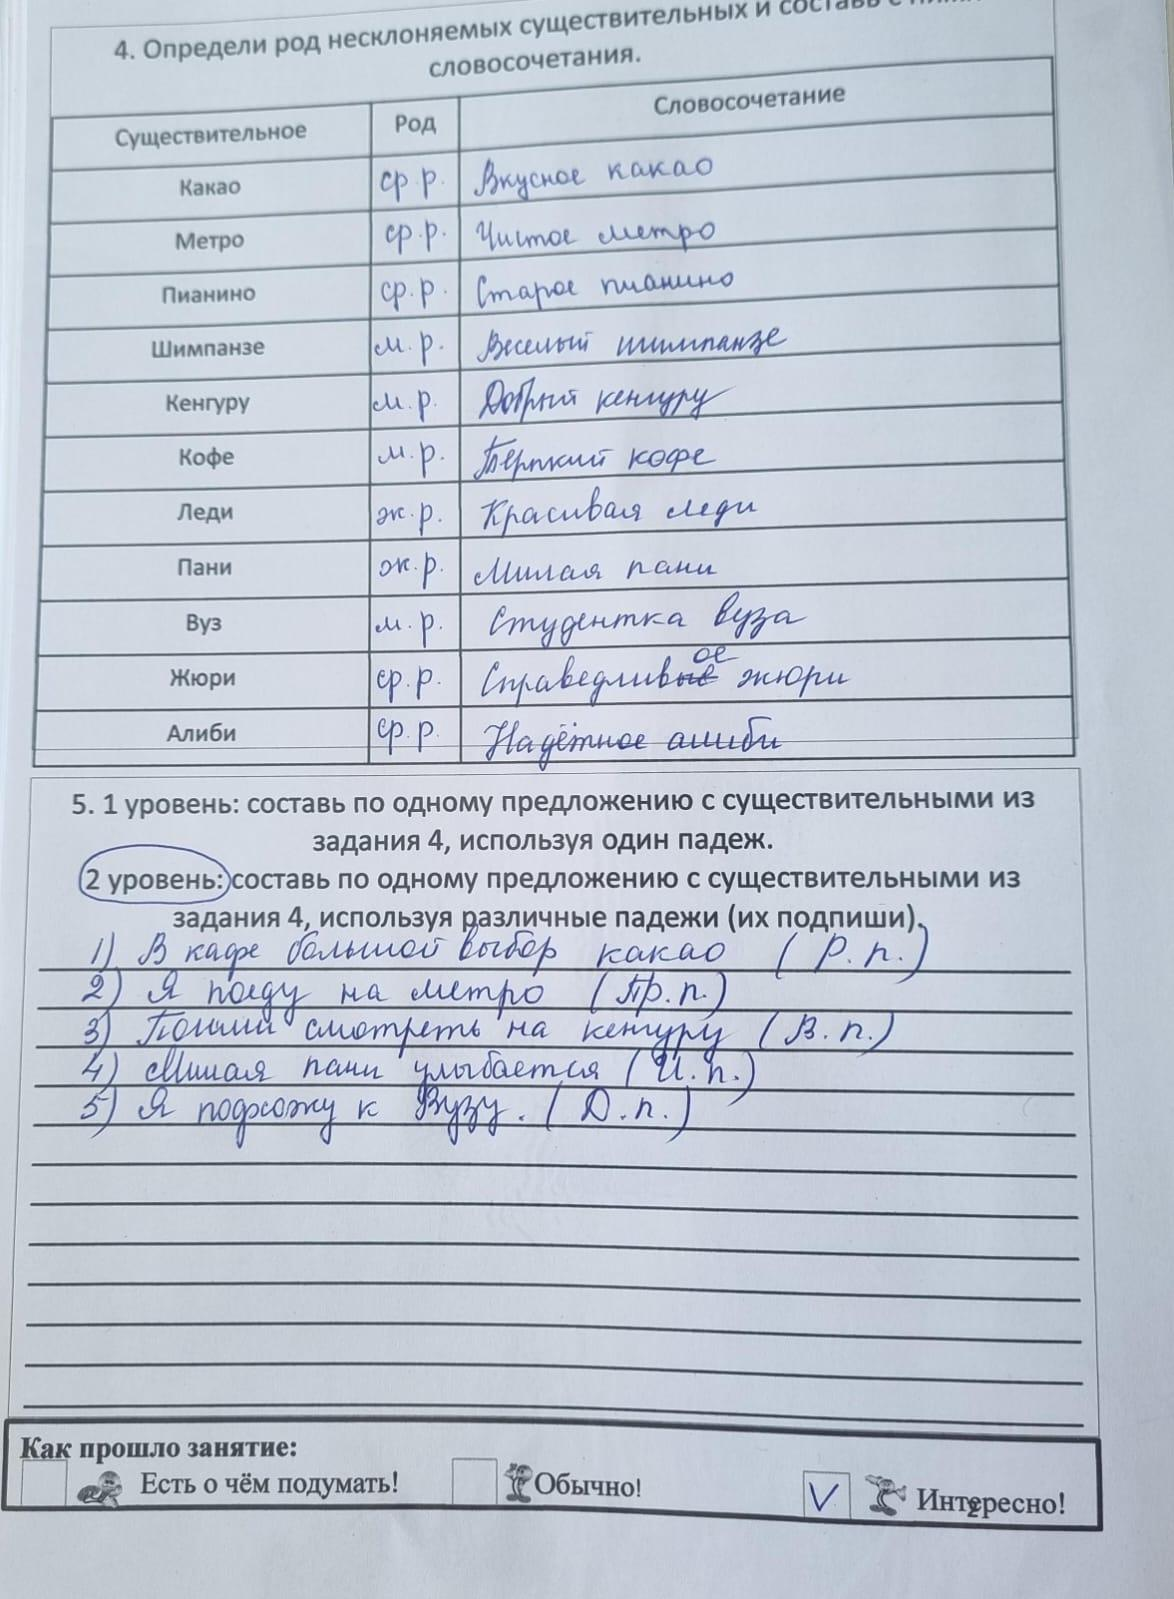 4. Определи род несклоняемых существительных и составь с ними
словосочетания.
Существительное Род Словосочетание
Какао ср. р. Вкусное какао
Метро ср. р. Чистое метро
Пианино ср. р. Старое пианино
Шимпанзе м. р. Веселый шимпанзе
Кенгуру м. р. Добрый кенгуру
Кофе м. р. Терпкий кофе
Леди ж. р. Красивая леди
Пани ж. р. Милая пани
Вуз м. р. Студентка вуза
Жюри ср. р. Справедливое жюри
Алиби ср. р. Надёжное алиби
5. 1 уровень: составь по одному предложению с существительными из
задания 4, используя один падеж.
2 уровень: составь по одному предложению с существительными из
задания 4, используя различные падежи (их подпиши).
1) В кафе большой выбор какао (Р.п.)
2) Я поеду на метро (Пр.п.)
3) Пошли смотреть на кенгуру (В.п.)
4) Милая пани улыбается (И.п.)
5) Я подхожу к Вузу. (Д.п.)
Как прошло занятие:
Есть о чём подумать! Обычно! V Интересно!
2